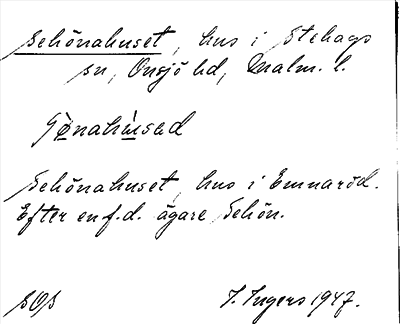 Schönahuset, hus i Stehags
sn, Onsjö hd, Malm. l.
Schönahuset, hus i Emmaröd.
Efter en f.d. ägare Schön.
SOS
I. Ingers 1947.